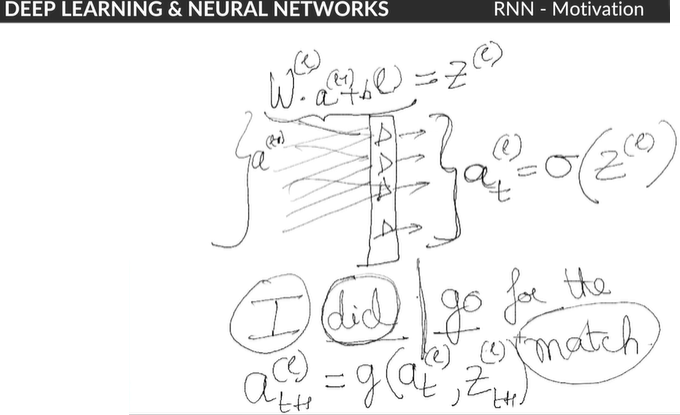 DEEP LEARNING & NEURAL NETWORKS
RNN - Motivation
W^(l) . a^(l-1) + b^(l) = z^(l)
a^(l-1)
a_t^(l) = σ(z^(l))
I did | go for the
match.
a_{t+1}^(l) = g(a_t^(l), z_{t+1}^(l))